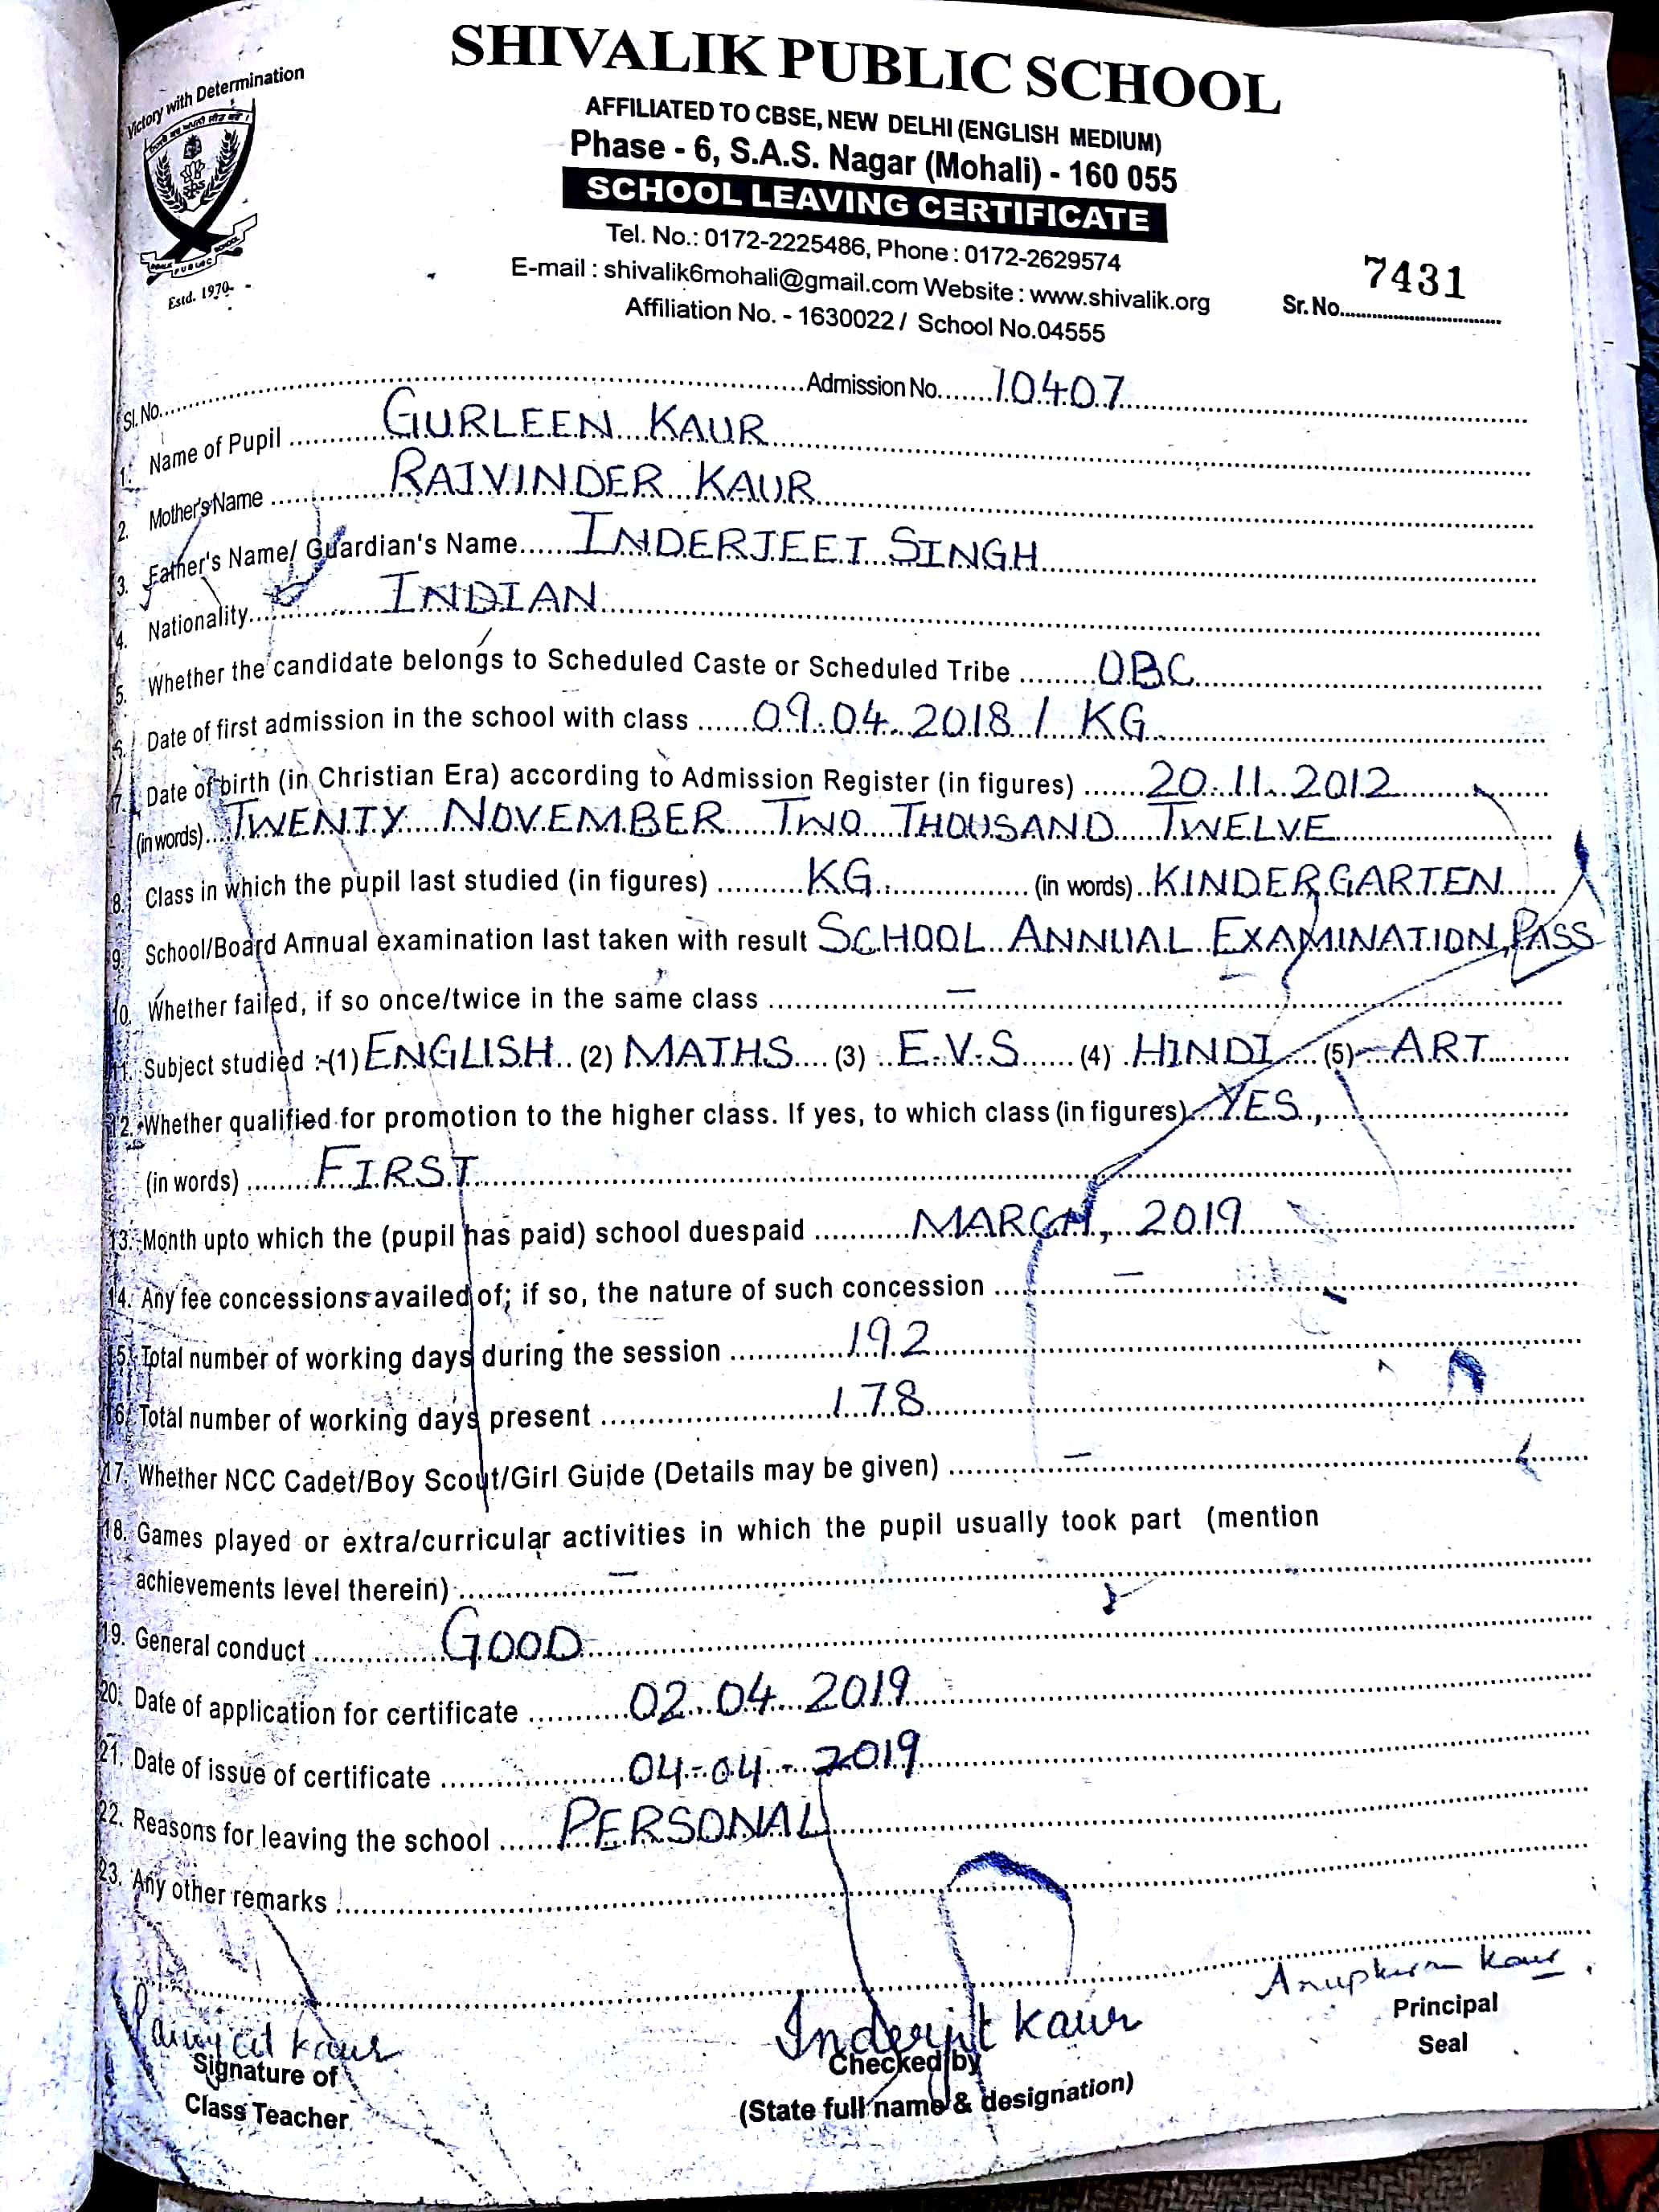 Victory with Determination
Estd. 1970
SHIVALIK PUBLIC SCHOOL
AFFILIATED TO CBSE, NEW DELHI (ENGLISH MEDIUM)
Phase - 6, S.A.S. Nagar (Mohali) - 160 055
SCHOOL LEAVING CERTIFICATE
Tel. No.: 0172-2225486, Phone : 0172-2629574
E-mail : shivalik6mohali@gmail.com Website : www.shivalik.org
Affiliation No. - 1630022 / School No.04555
Sr. No. 7431
Sl. No. Admission No. 10407
1. Name of Pupil GURLEEN KAUR
2. Mother's Name RAJVINDER KAUR
3. Father's Name/ Guardian's Name INDERJEET SINGH
4. Nationality INDIAN
5. Whether the candidate belongs to Scheduled Caste or Scheduled Tribe OBC
6. Date of first admission in the school with class 09.04.2018 / KG
7. Date of birth (in Christian Era) according to Admission Register (in figures) 20.11.2012
(in words) TWENTY NOVEMBER TWO THOUSAND TWELVE
8. Class in which the pupil last studied (in figures) KG (in words) KINDERGARTEN
9. School/Board Annual examination last taken with result SCHOOL ANNUAL EXAMINATION, PASS
10. Whether failed, if so once/twice in the same class —
11. Subject studied :-(1) ENGLISH (2) MATHS (3) E.V.S (4) HINDI (5) ART
12. Whether qualified for promotion to the higher class. If yes, to which class (in figures) YES,
(in words) FIRST
13. Month upto which the (pupil has paid) school duespaid MARCH, 2019
14. Any fee concessions availed of; if so, the nature of such concession —
15. Total number of working days during the session 192
16. Total number of working days present 178
17. Whether NCC Cadet/Boy Scout/Girl Guide (Details may be given) —
18. Games played or extra/curricular activities in which the pupil usually took part (mention
achievements level therein) —
19. General conduct GOOD
20. Date of application for certificate 02.04.2019
21. Date of issue of certificate 04-04-2019
22. Reasons for leaving the school PERSONAL
23. Any other remarks
Kaur Inderjit Kaur Anupkiran Kaur
Signature of Checked by Principal
Class Teacher (State full name & designation) Seal